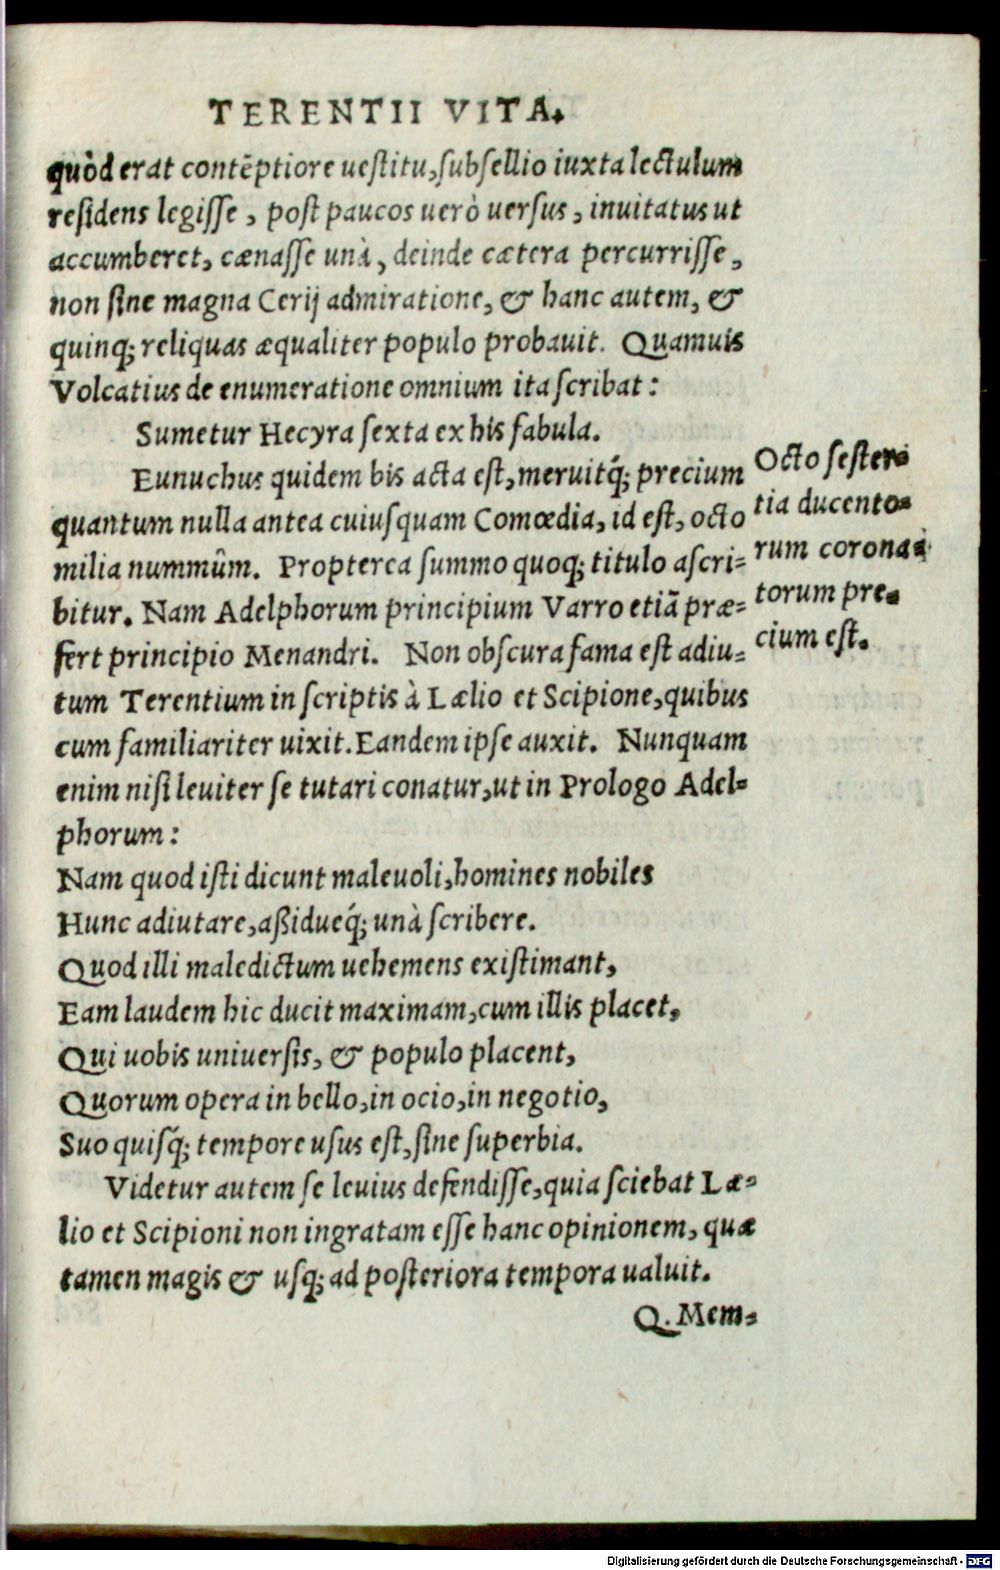 TERENTII VITA.
quòd erat contẽptiore uestitu, subsellio iuxta lectulum
residens legisse, post paucos uerò uersus, inuitatus ut
accumberet, cœnasse unà, deinde cætera percurrisse,
non sine magna Cerij admiratione, & hanc autem, &
quinq; reliquas æqualiter populo probauit. Quamuis
Volcatius de enumeratione omnium ita scribat:
Sumetur Hecyra sexta ex his fabula.
Eunuchus quidem bis acta est, meruitq́; precium
quantum nulla antea cuiusquam Comœdia, id est, octo
milia nummûm. Propterea summo quoq; titulo ascri-
bitur. Nam Adelphorum principium Varro etiã præ-
fert principio Menandri. Non obscura fama est adiu-
tum Terentium in scriptis à Lælio et Scipione, quibus
cum familiariter uixit. Eandem ipse auxit. Nunquam
enim nisi leuiter se tutari conatur, ut in Prologo Adel-
phorum:
Nam quod isti dicunt maleuoli, homines nobiles
Hunc adiutare, aßidueq́; unà scribere.
Quod illi maledictum uehemens existimant,
Eam laudem hic ducit maximam, cum illis placet,
Qui uobis uniuersis, & populo placent,
Quorum opera in bello, in ocio, in negotio,
Suo quisq́; tempore usus est, sine superbia.
Videtur autem se leuius defendisse, quia sciebat Læ-
lio et Scipioni non ingratam esse hanc opinionem, quæ
tamen magis & usq; ad posteriora tempora ualuit.
Q. Mem-
Octo sester
tia ducento-
rum corona-
torum pre-
cium est.
Digitalisierung gefördert durch die Deutsche Forschungsgemeinschaft - DFG